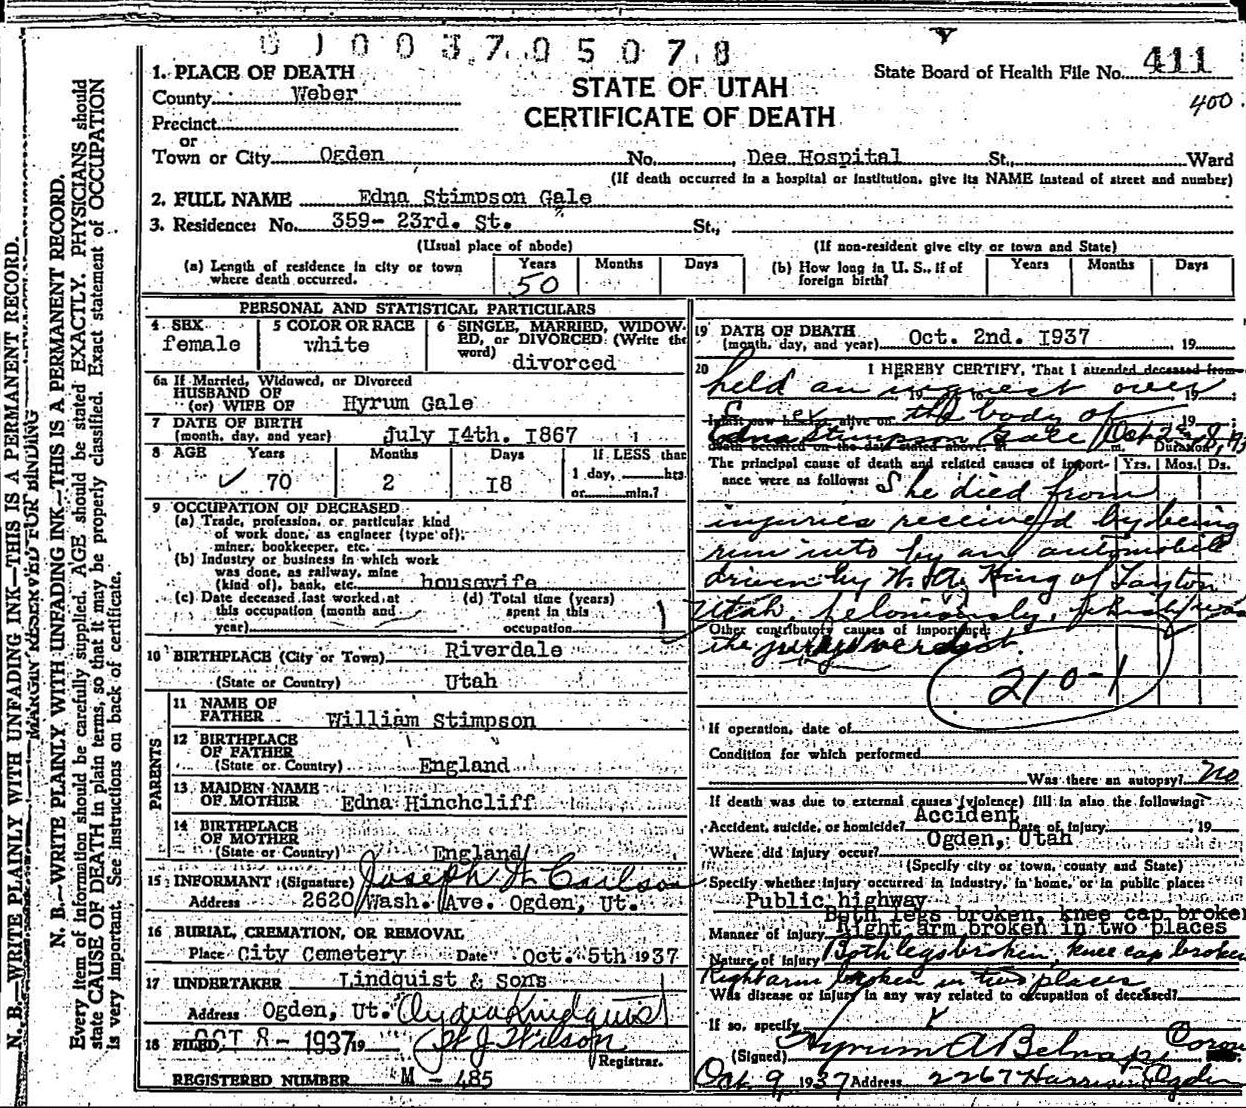 01003705078
411
State Board of Health File No.
400
STATE OF UTAH
CERTIFICATE OF DEATH
1. PLACE OF DEATH
County Weber
Precinct
or
Town or City Ogden No. Dee Hospital St., Ward
(If death occurred in a hospital or institution, give its NAME instead of street and number)
2. FULL NAME Edna Stimpson Gale
3. Residence: No. 359- 23rd. St. St.,
(Usual place of abode) (If non-resident give city or town and State)
(a) Length of residence in city or town where death occurred. Years 50 Months Days
(b) How long in U. S., if of foreign birth? Years Months Days
PERSONAL AND STATISTICAL PARTICULARS
4 SEX female
5 COLOR OR RACE white
6 SINGLE, MARRIED, WIDOW-
ED, or DIVORCED (Write the
word) divorced
6a If Married, Widowed, or Divorced
HUSBAND OF
(or) WIFE OF Hyrum Gale
7 DATE OF BIRTH
(month, day, and year) July 14th. 1867
8 AGE Years 70 Months 2 Days 18 If LESS than
1 day, hrs.
or min.?
9 OCCUPATION OF DECEASED
(a) Trade, profession, or particular kind
of work done, as engineer (type of),
miner, bookkeeper, etc.
(b) Industry or business in which work
was done, as railway, mine
(kind of), bank, etc. housewife
(c) Date deceased last worked at
this occupation (month and
year)
(d) Total time (years)
spent in this
occupation
10 BIRTHPLACE (City or Town) Riverdale
(State or Country) Utah
PARENTS
11 NAME OF
FATHER William Stimpson
12 BIRTHPLACE
OF FATHER
(State or Country) England
13 MAIDEN NAME
OF MOTHER Edna Hinchcliff
14 BIRTHPLACE
OF MOTHER
(State or Country) England
15 INFORMANT (Signature) Joseph W Carlson
Address 2620 Wash. Ave. Ogden, Ut.
16 BURIAL, CREMATION, OR REMOVAL
Place City Cemetery Date Oct. 5th 1937
17 UNDERTAKER Lindquist & Sons
Address Ogden, Ut. Clyde Lindquist
18 FILED OCT 8 - 1937 19 W J Wilson
Registrar.
REGISTERED NUMBER M - 485
19 DATE OF DEATH
(month, day, and year) Oct. 2nd. 1937 , 19
20 I HEREBY CERTIFY, That I attended deceased from
held an inquest over
, 19 to , 19 ;
I last saw her alive on , 19 ;
the body of
Edna Stimpson Gale
death occurred on the date stated above, at m. Duration
The principal cause of death and related causes of import-
ance were as follows: Yrs. Mos. Ds.
She died from
injuries received by being
run into by an automobile
driven by W. King of Layton
Utah, feloniously, was
Other contributory causes of importance:
the jury verdict.
210-1
If operation, date of
Condition for which performed
Was there an autopsy? no
If death was due to external causes (violence) fill in also the following:
Accident, suicide, or homicide? Accident Date of injury , 19
Where did injury occur? Ogden, Utah
(Specify city or town, county and State)
Specify whether injury occurred in industry, in home, or in public place:
Public highway
Both legs broken, knee cap broken
Manner of injury Right arm broken in two places
Nature of Injury Both legs broken, knee cap broken
Right arm broken in two places
Was disease or injury in any way related to occupation of deceased?
If so, specify
(Signed) Hyrum A Belnap, Coroner
Oct 9, 1937 Address 2267 Harrison Ogden
N. B.—WRITE PLAINLY WITH UNFADING INK—THIS IS A PERMANENT RECORD.
MARGIN RESERVED FOR BINDING
N. B.—WRITE PLAINLY, WITH UNFADING INK—THIS IS A PERMANENT RECORD.
Every item of information should be carefully supplied. AGE should be stated EXACTLY. PHYSICIANS should
state CAUSE OF DEATH in plain terms, so that it may be properly classified. Exact statement of OCCUPATION
is very important. See instructions on back of certificate.